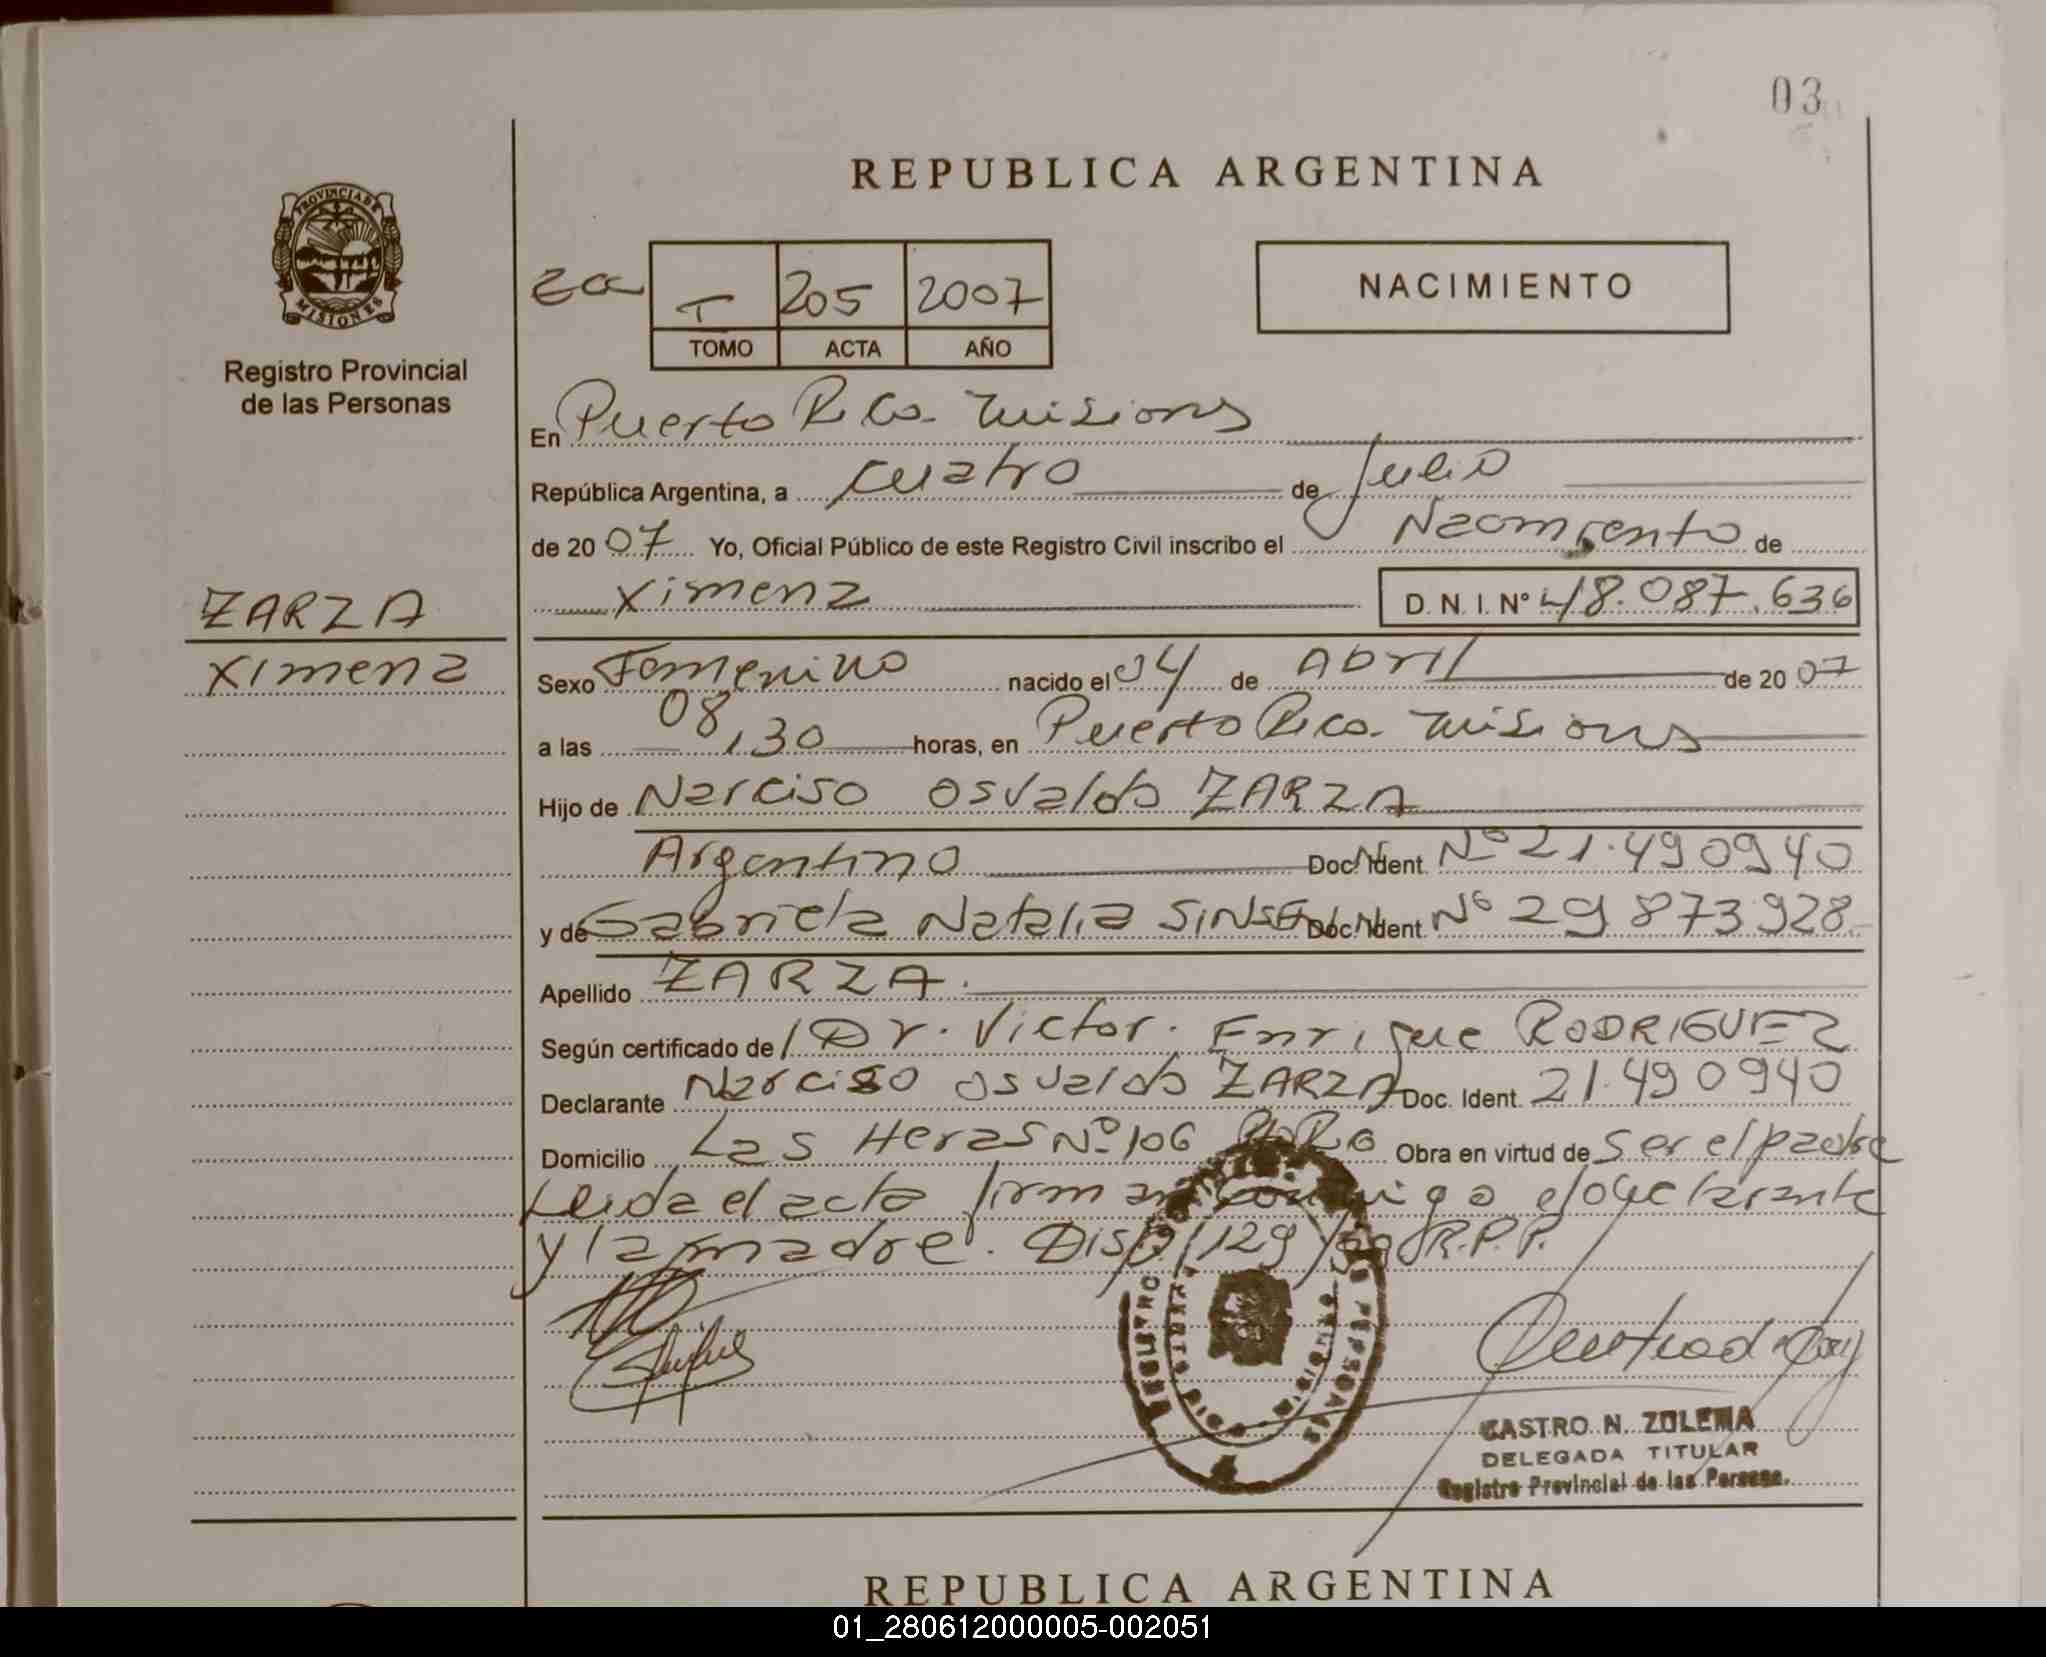 03
REPUBLICA ARGENTINA
PROVINCIA DE
MISIONES
Registro Provincial
de las Personas
T 205 2007
TOMO ACTA AÑO
NACIMIENTO
En Puerto Rico. Misiones
República Argentina, a cuatro de Julio
de 2007 Yo, Oficial Público de este Registro Civil inscribo el Nacimiento de
Ximena D.N.I. Nº 48.087.636
ZARZA
Ximena
Sexo Femenino nacido el 04 de Abril de 2007
a las 08,30 horas, en Puerto Rico. Misiones
Hijo de Narciso Osvaldo ZARZA
Argentino Doc. Ident. Nº 21.490940
y de Gabriela Natalia Doc. Ident. Nº 29 873 928
Apellido ZARZA.
Según certificado de Dr. Victor. Enrique RODRIGUEZ
Declarante Narciso Osvaldo ZARZA Doc. Ident. 21.490940
Domicilio Las Heras Nº 106 Obra en virtud de ser el padre
Leida el acta firman conmigo el declarante
y la madre. Disp. 129 R.P.P.
CASTRO N. ZULEMA
DELEGADA TITULAR
Registro Provincial de las Personas.
REPUBLICA ARGENTINA
01_280612000005-002051